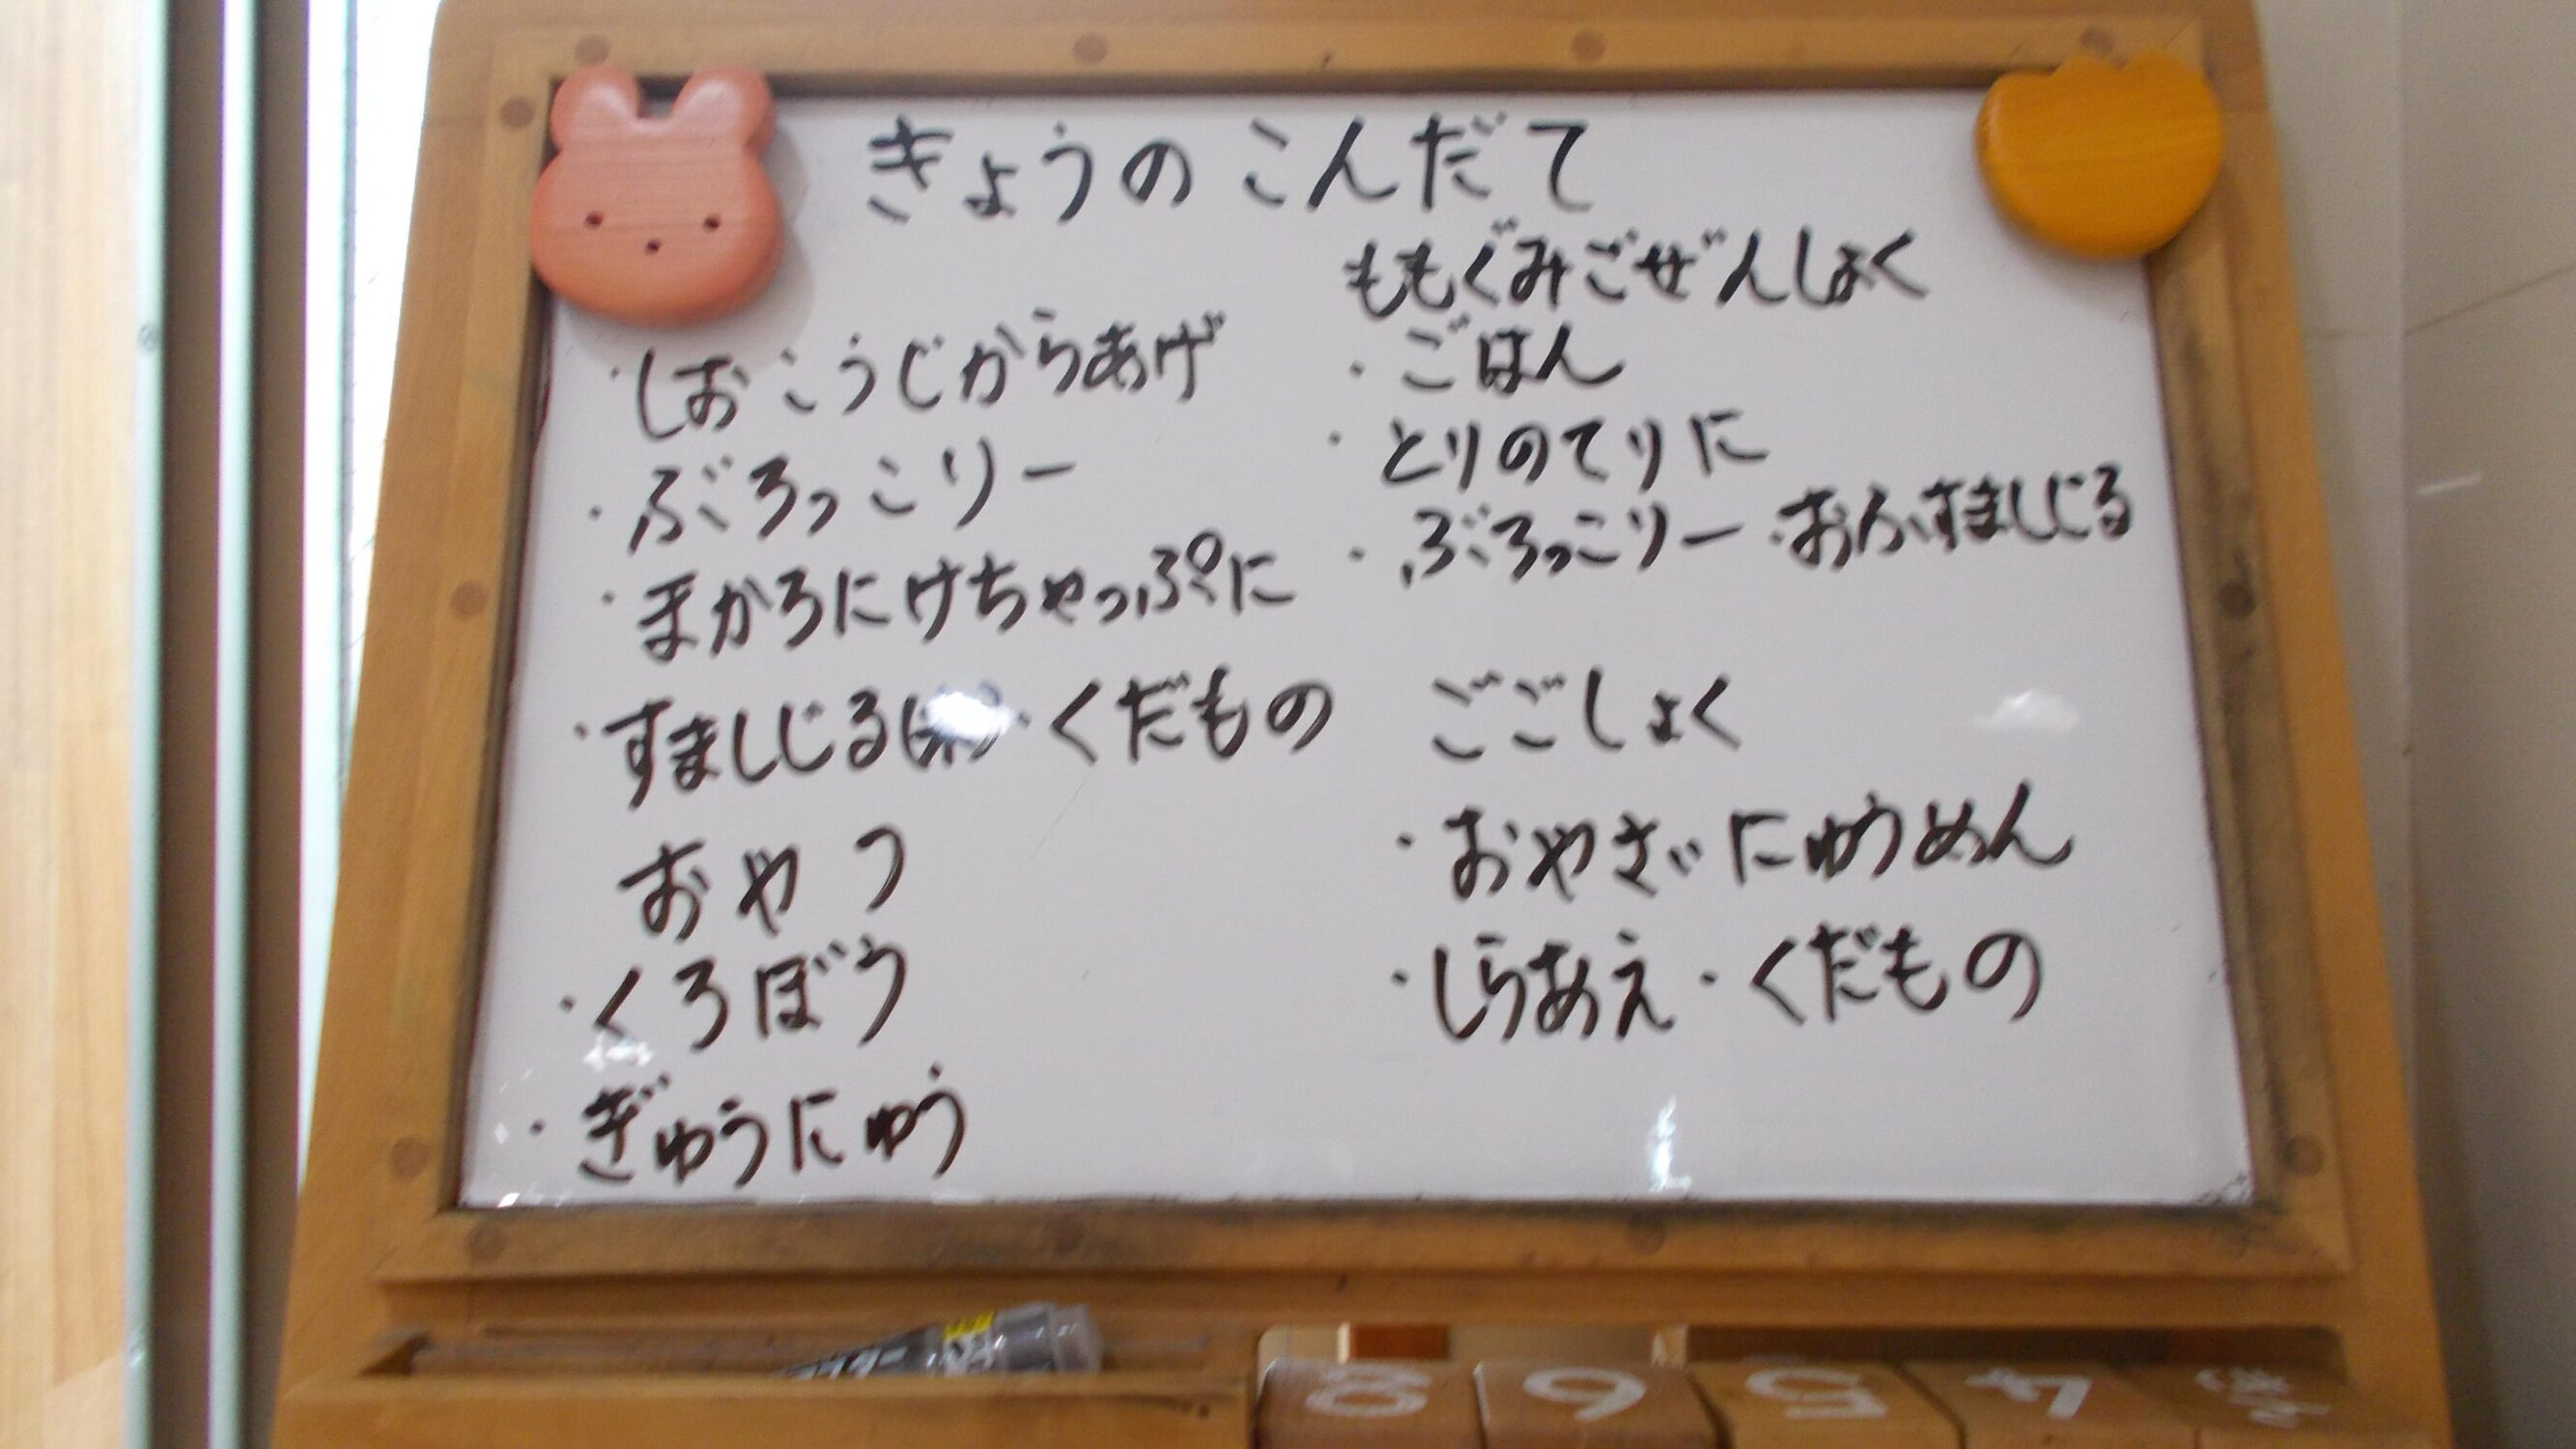 きょうのこんだて
・しおこうじからあげ
・ぶろっこりー
・まかろにけちゃっぷに
・すましじる ・くだもの
おやつ
・くろぼう
・ぎゅうにゅう
ももぐみごぜんしょく
・ごはん
・とりのてりに
・ぶろっこりー・おふすましじる
ごごしょく
・おやさいにゅうめん
・しらあえ・くだもの